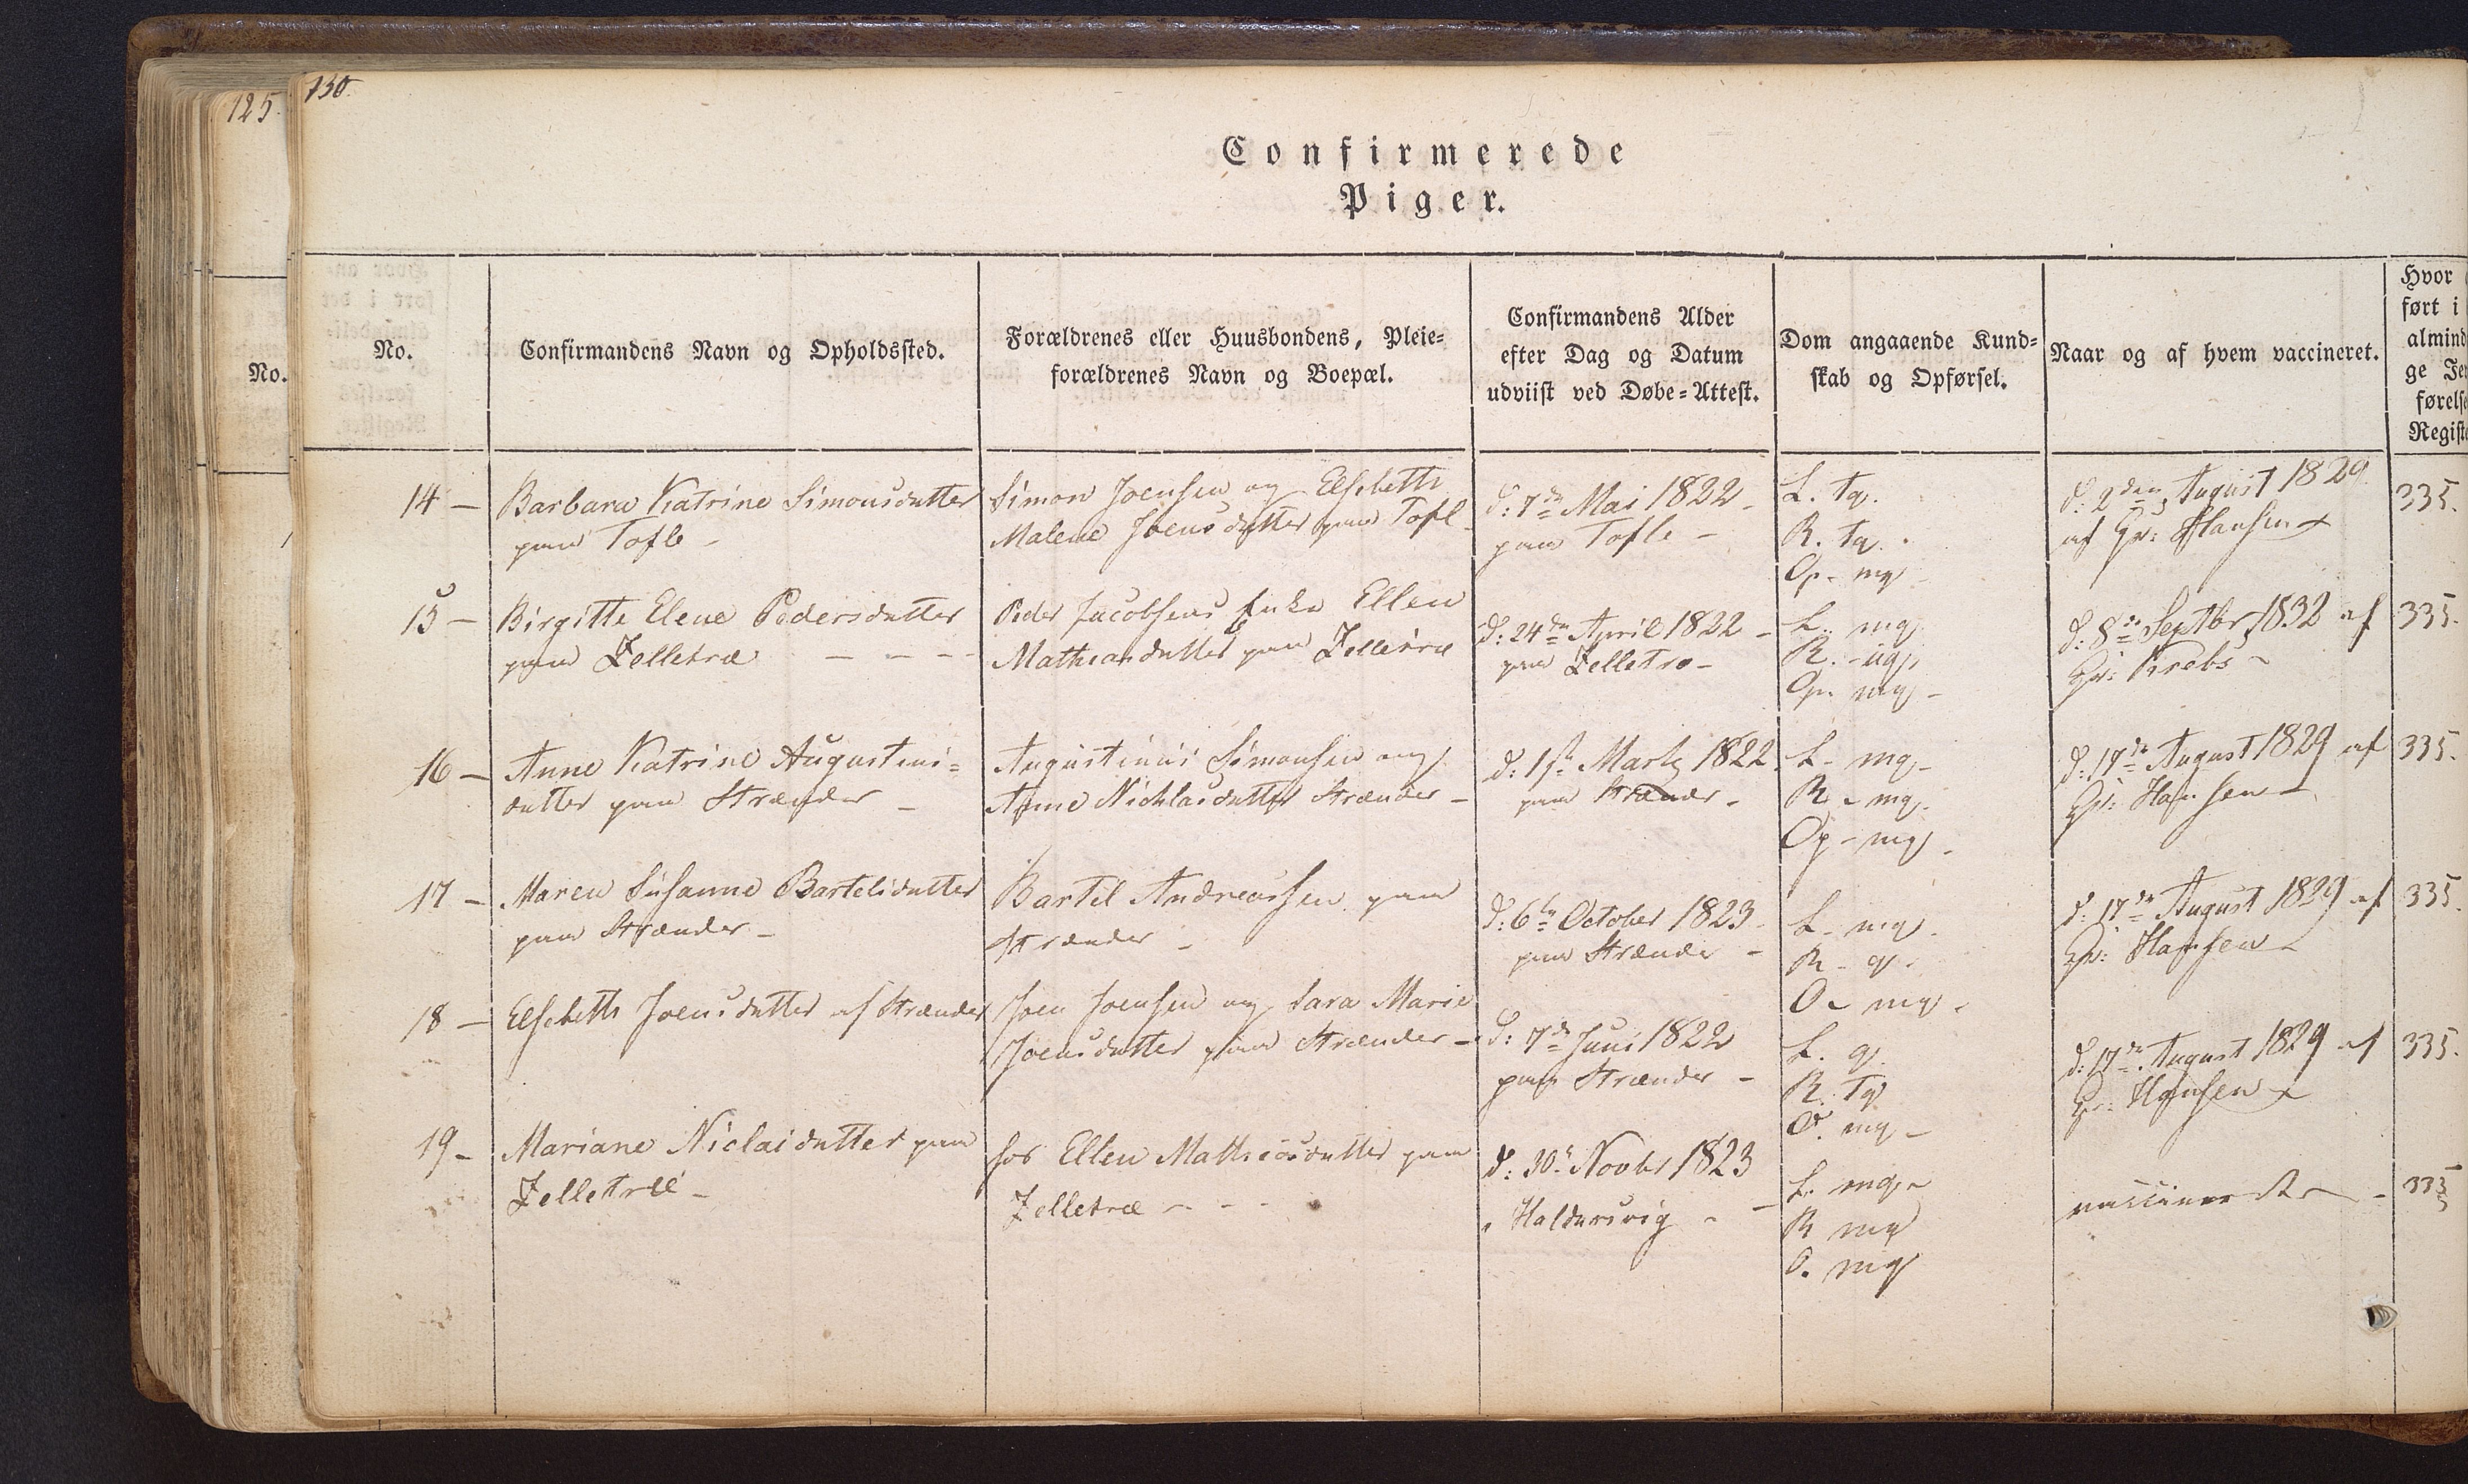 125
130
Confirmerede
Piger.
No.
No.
Confirmandens Navn og Opholdssted.
Forældrenes eller Huusbondens, Pleie-
forældrenes Navn og Boepæl.
Confirmandens Alder
efter Dag og Datum
udviist ved Døbe-Attest.
Dom angaaende Kund-
skab og Opførsel.
Naar og af hvem vaccineret.
Hvor
ført i
almind
ge Je
førelse
Registe
14 –
Barbara Katrine Simonsdatter
paa Tofle –
Simon Joensen og Elsebeth
Malene Joensdatter paa Tofl
d: 7de Mai 1822 –
paa Tofle –
L. tg.
R. tg.
Op – mg
d: 2den August 1829
af Gr: Hansen
335.
15 –
Birgitte Elene Pedersdatter
paa Zelletræ – – –
Peder Jacobsens Enke Ellen
Matheasdatter paa Zelletræ
d: 24de April 1822 –
paa Zelletræ –
L. mg
R. – ug
Op. mg –
d: 8de Septbr 1832 af
Gr: Krebs –
335.
16 –
Anne Katrine Augustini-
datter paa Strænder –
Augustinus Simonsen og
Anne Nichlasdatter Strænder –
d: 1ste Marts 1822
paa Strænder –
L – mg –
R – mg.
Op – mg –
d: 17de August 1829 af
Gr: Hansen –
335.
17 –
Maren Susanne Bartelsdatter
paa Strænder –
Bartel Andreassen paa
Strænder –
d: 6te October 1823
paa Strænder –
L – mg.
R – g.
O – mg.
d: 17de August 1829 af
Gr: Hansen –
335.
18 –
Elsebeth Joensdatter af Strænder
Joen Joensen og Sara Marie
Joensdatter paa Strænder –
d: 7de Juni 1822
paa Strænder –
L. g.
R. Tg
O. mg –
d: 17de August 1829 af
Gr: Hansen
335.
19 –
Mariane Niclaidatter paa
Zelletræ –
hos Ellen Matheasdatter paa
Zelletræ – – –
d: 30te Novbr 1823
i Haldarsvig –
L. mg –
R mg
O. mg
335